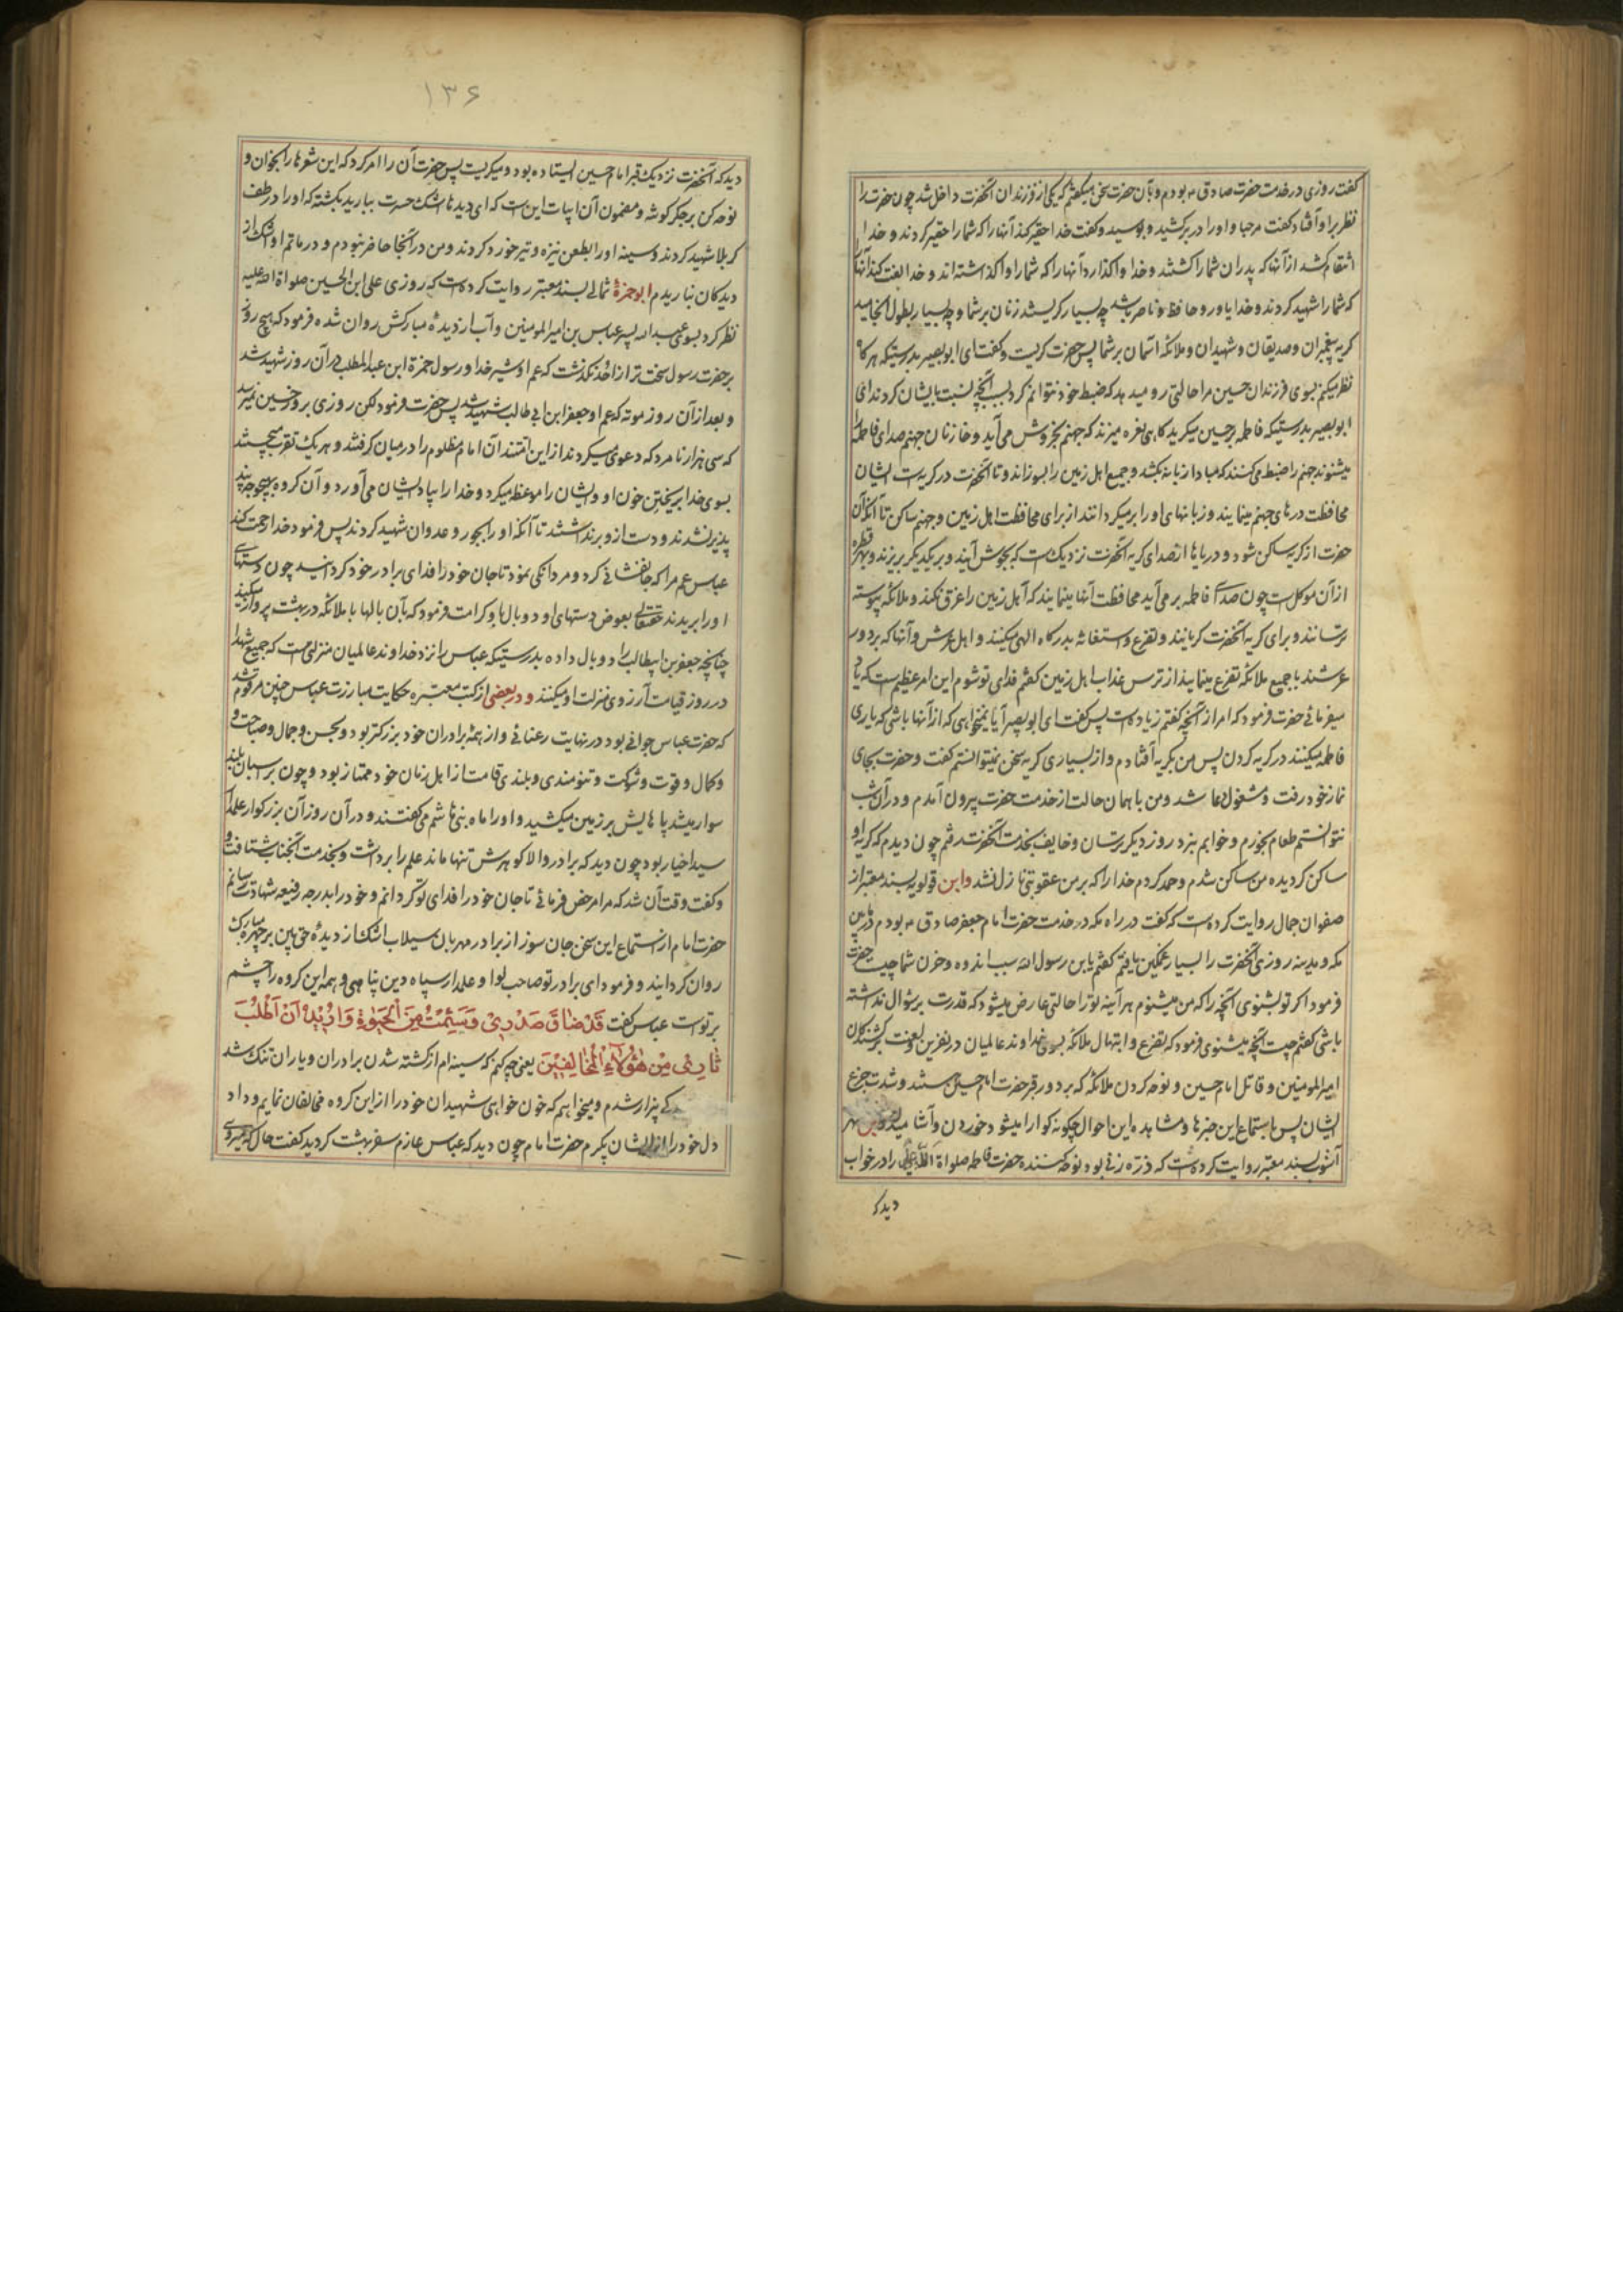 گفت روزی در خدمت حضرت صادق ع بودم و بآن حضرت سخن میگفتم که یکی از فرزندان آنحضرت داخل شد چون حضرت را
نظر براو افتاد گفت مرحبا و اورا در برکشید و بوسید و گفت خدا حقیر کند آنها را که شما را حقیر کردند و خدا
انتقام کشد از آنها که پدران شما را کشتند و خدا واگذارد آنها را که شما را واگذاشته اند و خدا لعنت کند آنها
که شما را شهید کردند و خدا یاور و حافظ و ناصر شما باشد چه بسیار گریستند زنان بر شما و چه بسیار بطول انجامید
گریه پیغمبران و صدیقان و شهیدان و ملائکه آسمان بر شما پس حضرت گریست و گفت ای ابو بصیر بدرستیکه هرگاه
نظر میکنم بسوی فرزندان حسین مرا حالتی رو میدهد که ضبط خود نتوانم کرد بسبب آنچه نسبت بایشان کردند ای
ابو بصیر بدرستیکه فاطمه بر حسین میگرید گاهی نعره میزند که جهنم بخروش می آید و خازنان جهنم صدای فاطمه را
میشنوند جهنم را ضبط میکنند که مبادا زبانه بکشد و جمیع اهل زمین را بسوزاند و تا آنحضرت در گریه است ایشان
محافظت درهای جهنم مینمایند و زبانهای او را برمیگردانند از برای محافظت اهل زمین و جهنم ساکن تا آنکه آن
حضرت از گریه ساکن شود و دریاها از صدای گریه آنحضرت نزدیک است که بجوش آیند و بر یکدیگر بریزند و بهر قطره
از آن موکلست چون صدای فاطمه بر می آید محافظت آنها مینمایند که اهل زمین را غرق نکند و ملائکه پیوسته
ترسانند و برای گریه آنحضرت گریانند و تضرع و استغاثه بدرگاه الهی میکنند و اهل عرش و آنها که بر دور
عرشند با جمیع ملائکه تضرع مینمایند از ترس عذاب اهل زمین گفتم فدای تو شوم این امر عظیمست که
میفرمائی حضرت فرمود که امر از آنچه گفتم زیاده است پس گفت ای ابو بصیر آیا نمیخواهی که از آنها باشی که یاری
فاطمه میکنند در گریه کردن پس من بگریه افتادم و از بسیاری گریه سخن نمیتوانستم گفت و حضرت بجای
نماز خود رفت و مشغول دعا شد و من با همان حالت از خدمت حضرت بیرون آمدم و در آن شب
نتوانستم طعام بخورم و خوابم نبرد روز دیگر ترسان و خایف بخدمت آنحضرت رفتم چون دیدم که گریه او
ساکن گردیده من ساکن شدم و حمد کردم خدا را که بر من عقوبتی نازل نشد و ابن قولویه بسند معتبر از
صفوان جمال روایت کرده است که گفت در راه مکه در خدمت حضرت امام جعفر صادق ع بودم در مابین
مکه و مدینه روزی آنحضرت را بسیار غمگین یافتم گفتم یابن رسول الله سبب اندوه و حزن شما چیست حضرت
فرمود اگر تو بشنوی آنچه را که من میشنوم هر آینه تو را حالتی عارض میشود که قدرت بر سؤال نداشته
باشی گفتم چیست آنچه میشنوی فرمود که تضرع و ابتهال ملائکه بسوی خداوند عالمیان در نفرین و لعنت بر کشندگان
امیرالمومنین و قاتل امام حسین و نوحه کردن ملائکه که بر دور قبر حضرت امام حسین هستند و شدت جزع
ایشان پس باستماع این خبرها و مشاهده این احوال چگونه گوارا میشود خوردن و آشامیدن و ابن شهر
آشوب بسند معتبر روایت کرده است که ذره زنی بود نوحه کننده حضرت فاطمه صلواة الله علیها را در خواب
دید که
۱۳۶
دید که آنحضرت نزدیک قبر امام حسین ایستاده بود و میگریست پس حضرت آن را امر کرد که این شعرها را بخوان و
نوحه کن بر جگر گوشه و مضمون آن ابیات این است که ای دیدها اشک حسرت ببارید بکشته که او را در طف
کربلا شهید کردند و سینه او را بطعن نیزه و تیر خورد کردند و من در آنجا حاضر نبودم و در ماتم او اشک از
دیدگان نباریدم ابو حمزهٔ ثمالی بسند معتبر روایت کرده است که روزی علی ابن الحسین صلواة الله علیه
نظر کرد بسوی عبید الله پسر عباس بن امیرالمومنین و آب از دیدهٔ مبارکش روان شده فرمود که هیچ روز
بر حضرت رسول سخت تر از احد نگذشت که عم او شیر خدا و رسول حمزة ابن عبدالمطلب در آن روز شهید شد
و بعد از آن روز موته که عم او جعفر ابن ابی طالب شهید شد پس حضرت فرمود لکن روزی بروز حسین نمیرسد
که سی هزار نامرد که دعوی میکردند از این امتند آن امام مظلوم را در میان گرفتند و هر یک تقرب میجستند
بسوی خدا بریختن خون او و ایشان را موعظه میکرد و خدا را بیاد ایشان می آورد و آن گروه بهیچوجه پند
پذیر نشدند و دست از و برنداشتند تا آنکه او را بجور و عدوان شهید کردند پس فرمود خدا رحمت کند
عباس عم مرا که جانفشانی کرد و مردانگی نمود تا جان خود را فدای برادر خود گردانید چون دستهای
او را بریدند حقتعالی بعوض دستهای او دو بال باو کرامت فرمود که بآن بالها با ملائکه در بهشت پرواز میکند
چنانچه جعفر بن ابیطالب را دو بال داده بدرستیکه عباس را نزد خداوند عالمیان منزلی است که جمیع شهدا
در روز قیامت آرزوی منزلت او میکنند و در بعضی از کتب معتبره حکایت مبارزت عباس چنین مرقوم شد
که حضرت عباس جوانی بود در نهایت رعنائی و از همهٔ برادران خود بزرگتر بود و بحسن و جمال و صباحت و
و کمال و قوت و شوکت و تنومندی و بلندی قامت از اهل زمان خود ممتاز بود و چون بر اسبان بلند
سوار میشد پاهایش بر زمین میکشید و او را ماه بنی هاشم میگفتند و در آن روز آن بزرگوار علمدار
سید اخیار بود چون دید که برادر والا گوهرش تنها مانده علم را برداشت و بخدمت آنجناب شتافت و
و گفت وقت آن شد که مرا مرخص فرمائی تا جان خود را فدای تو گردانم و خود را بدرجه رفیعه شهادت رسانم
حضرت امام از استماع این سخن جان سوز از برادر مهربان سیلاب اشک از دیدهٔ حق بین بر چهره مبارک
روان گردانید و فرمود ای برادر تو صاحب لوا و علمدار سپاه دین پناهی و همه این گروه را چشم
بر تو است عباس گفت قَدْ ضٰاقَ صَدْرِیْ وَسَئِمْتُ مِنَ الْحَیٰوةِ وَاُرِیْدُ اَنْ اَطْلُبَ
ثٰارِیْ مِنْ هٰؤُلٰاءِ الْمُخٰالِفِیْنَ یعنی چه کنم که سینه ام از کشته شدن برادران و یاران تنگ شد
بیزار شدم و میخواهم که خون خواهی شهیدان خود را از این گروه مخالفان نمایم و داد
دل خود را از ایشان بگیرم حضرت امام چون دید که عباس عازم سفر بهشت گردید گفت حال که میروی